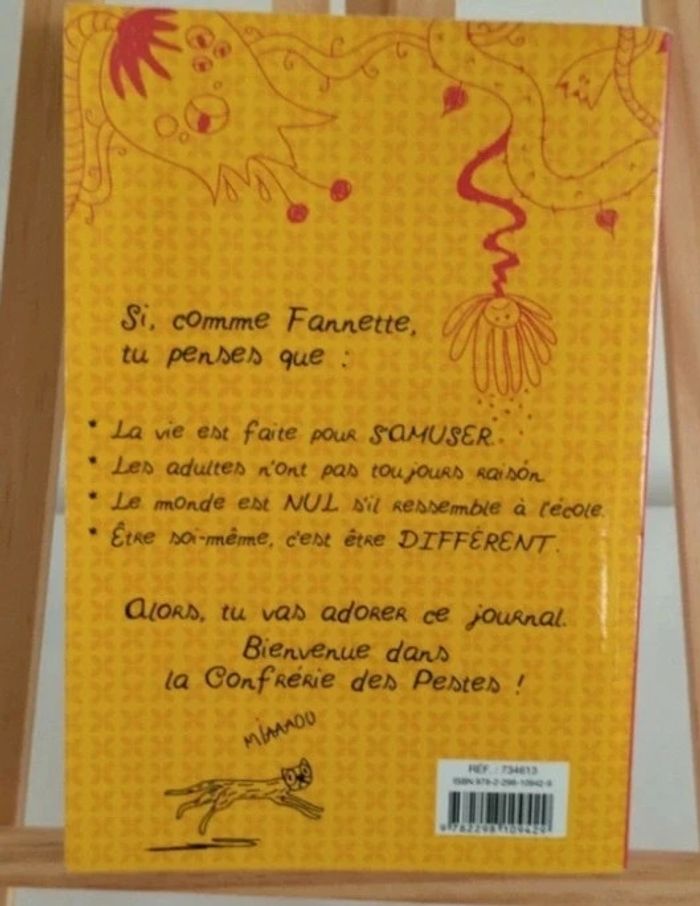 Si, comme Fannette,
tu penses que :
* La vie est faite pour S'AMUSER.
* Les adultes n'ont pas toujours raison
* Le monde est NUL s'il ressemble à l'école.
* Être soi-même, c'est être DIFFÉRENT.
Alors, tu vas adorer ce journal.
Bienvenue dans
la Confrérie des Pestes !
MIAAAOU
RÉF. : 734613
ISBN 978-2-298-10942-9
9 782298 109429